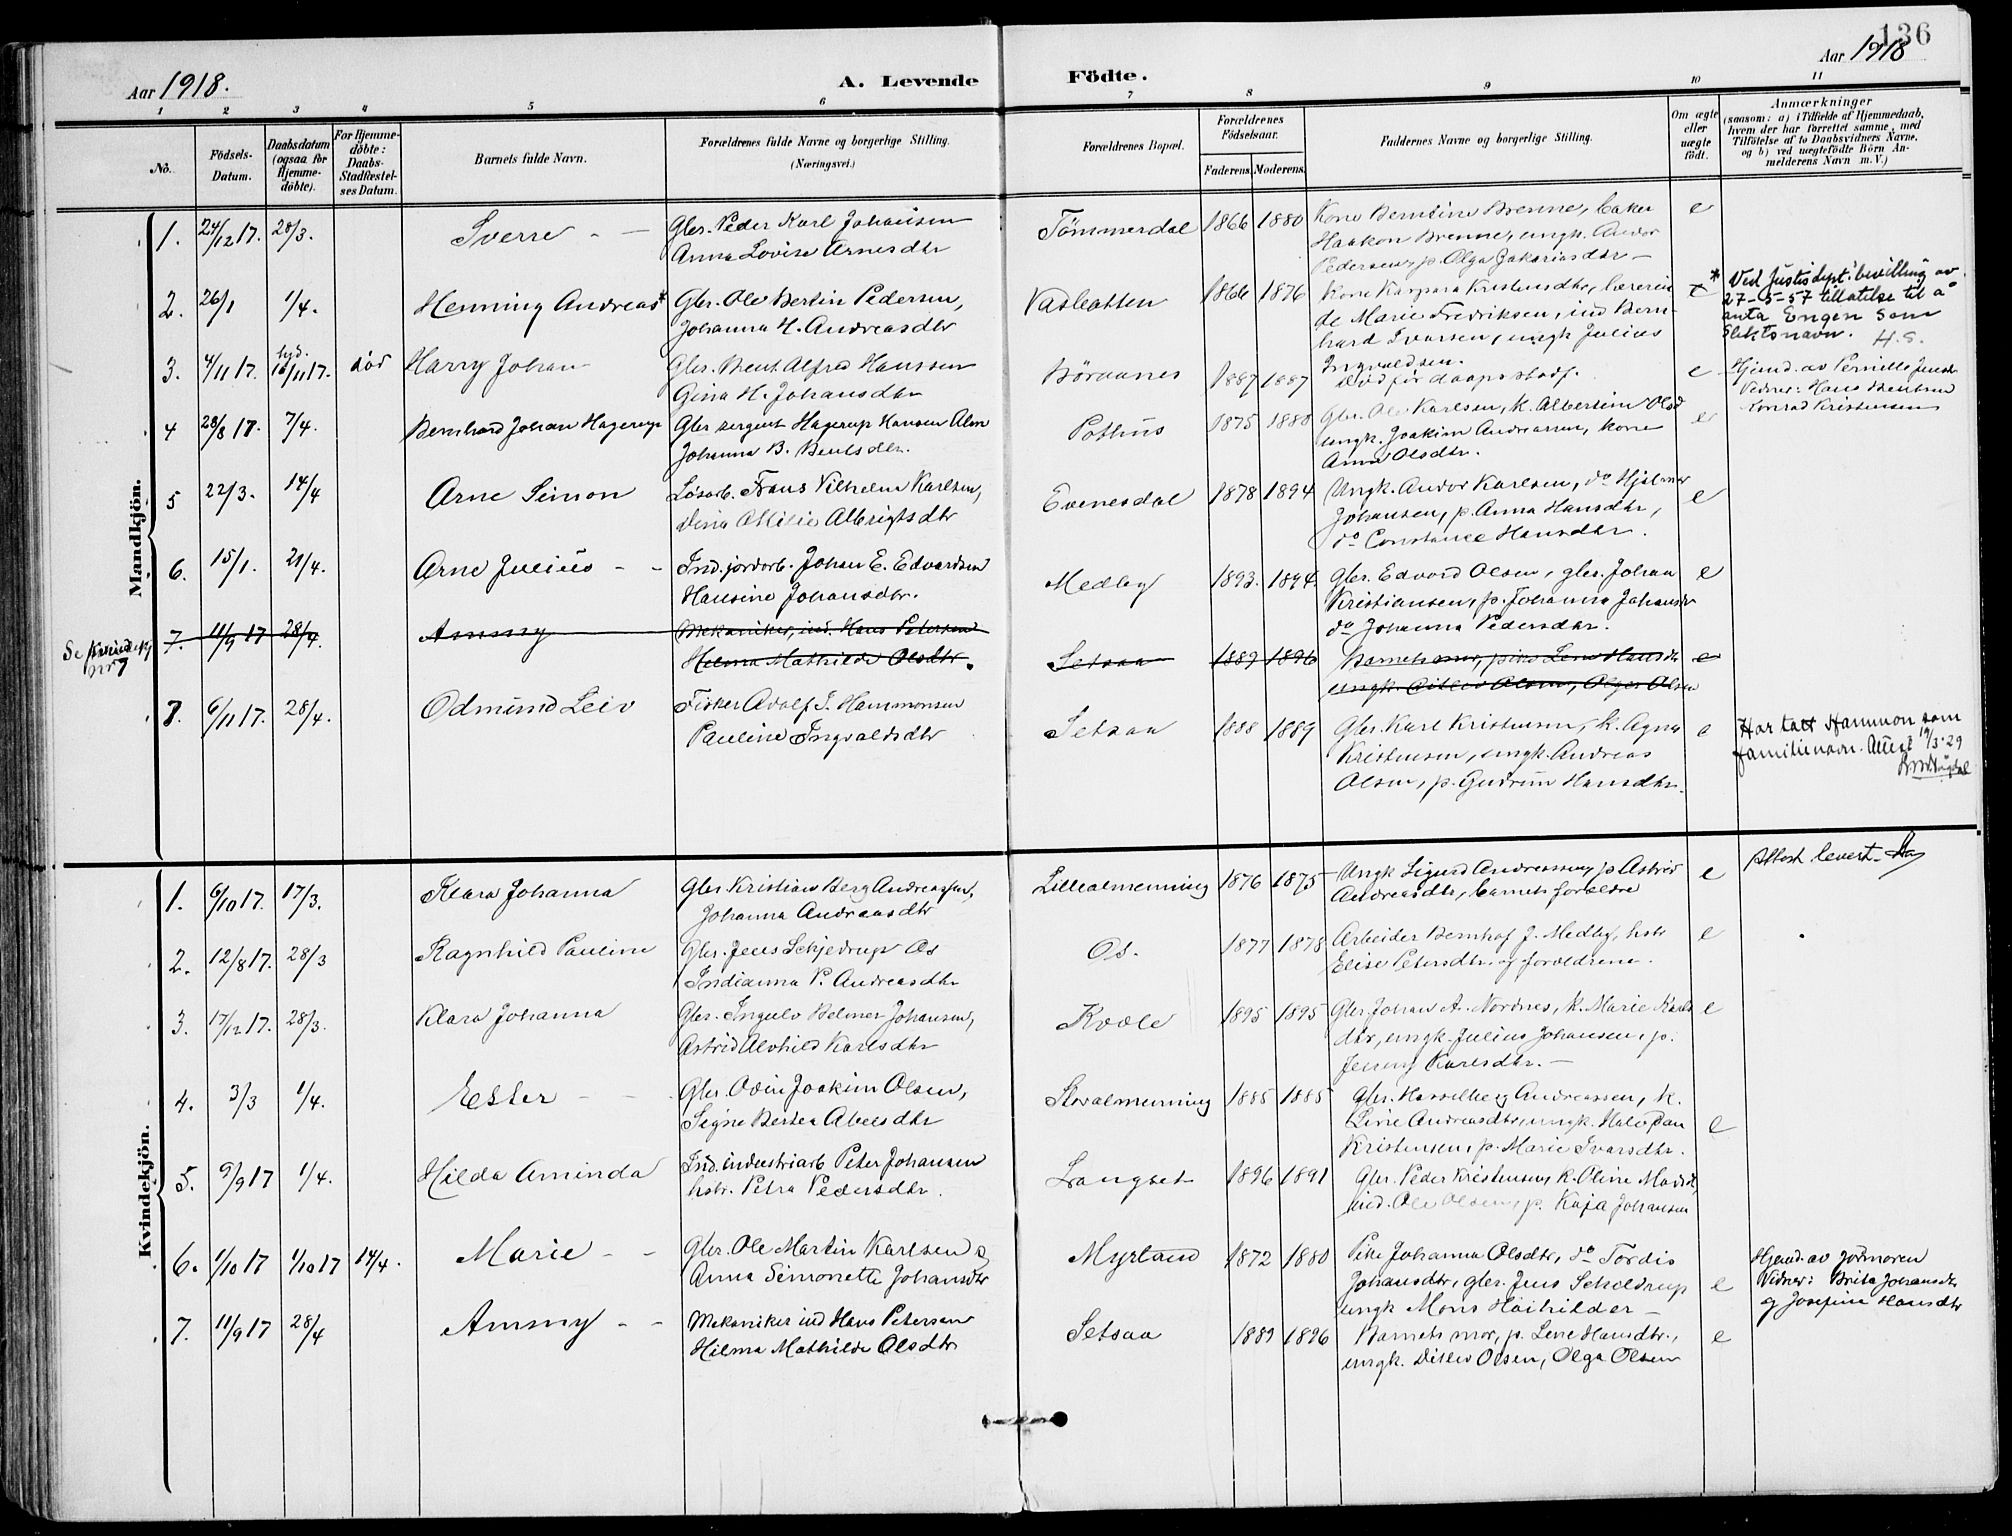 136
Aar 1918.
A. Levende
Födte.
Aar 1918
1 2 3 4 5 6 7 8 9 10 11
No.
Födsels-Datum.
Daabsdatum (ogsaa for Hjemme-döbte).
For Hjemme-döbte: Daabs-Stadfæstel-ses Datum.
Barnets fulde Navn.
Forældrenes fulde Navne og borgerlige Stilling. (Næringsvei.)
Forældrenes Bopæl.
Forældrenes Födselsaar.
Faderens. Moderens.
Faddernes Navne og borgerlige Stilling.
Om ægte eller uægte födt.
Anmærkninger
(saasom: a) i Tilfælde af Hjemmedaab,
hvem der har forrettet samme, med
Tilföielse af to Daabsvidners Navne,
og b) ved uægtefödte Börn An-
melderens Navn m. V.)
Mandkjön.
1. 24/12 17. 28/3. Sverre - — Gbr. Peder Karl Johansen Tömmerdal 1866 1880 Kone Berntine Brenne, Baker e
Anna Lovise Arnesdtr Haakon Brenne, ungk. Andor
Pedersen, p. Olga Jakoriasdtr —
2. 26/1 1/4. Henning Andreas* Gbr. Ole Bertin Pedersen, Vasbotten 1866 1876 Kone Kaspara Kristensdtr, lærerin e * Ved Justisdept. bevilling av
Johanna H. Andreasdtr de Marie Fredriksen, ind Bern- 27-5-57 tillatelse til å
hard Ivarsen, ungk Julius anta Engen som
Ingvaldsen. slektsnavn. H.S.
3. 4/11 17. hjd. 16/11 17. död Harry Johan Gbr. Bent Alfred Hanssen Börvanes 1887 1887 Död för daapsstadf. e Hjemd. av Pernille Jensdtr
Gina H. Johansdtr Vidner: Hans Bentsen
Konrad Kristensen
4 28/8 17. 7/4. Bernhard Johan Hagerup Gbr sergeant Hagerup Hansen Alm Pothus 1875 1888 Gbr. Ole Karlsen, k. Albertine Olsd e
Johanna B. Bentsdtr. ungk. Joakim Andreassen, kone
Anna Olsdtr.
5 22/3. 14/4 Arne Simon Lösarb. Frans Vilhelm Karlsen, Evenesdal 1878 1894 Ungk. Andor Karlsen, do Hjalmar e
Dina Otilie Albrigtsdtr Johansen, p. Anna Hansdtr,
do Constance Hansdtr.
6. 15/1. 21/4. Arne Julius - - Ind. jordarb. Johan E. Edvardsen Medby 1893. 1894 Gbr. Edvard Olsen, gbr. Johan e
Hansine Johansdtr. Kristiansen, p. Johanna Johansdtr
do Johanna Pedersdtr.
Se Kvindekj nr 7
7. 11/9 17 28/4. Ammy Mekaniker, ind. Hans Petersen
Helma Mathilde Olsdtr. Setsaa 1889 1896 Barnets mor, pike Lene Hansdtr e
ungk. Ditlev Olsen, Olga Olsen
8. 6/11 17. 28/4. Odmund Leiv Fisker Adolf J. Hammonsen Setsaa 1888 1889 Gbr. Karl Kristensen, k. Agna e Har tatt Hammon som
Pauline Ingvaldsdtr Kristensen, ungk. Andreas familienavn. Attest 19/3-29
Olsen, p. Gudrun Hansdtr.
Kvindekjön.
1. 6/10 17. 17/3. Klara Johanna Gbr Kristian Berg Andreassen, Lillealmenning 1876 1875 Ungk Sigurd Andreassen, p Astrid e Attest levert.
Johanna Andreasdtr Andreasdtr, barnets forældre
2. 12/8 17. 28/3 Ragnhild Pauline Gbr. Jens Schjedrup Os Os. 1877 1878 Arbeider Bernhof J. Medby, hstr e
Indianna P. Andreasdtr Elise Petersdtr. og forældrene.
3. 17/12 17. 28/3. Klara Johanna Gbr. Ingulv Belmer Johansen, Kvæle 1895 1895 Gbr. Johan A. Nordnes, k. Marie Karls e
Astrid Alvhild Karlsdtr dtr, ungk. Julius Johansen, p.
Jenny Karlsdtr. —
4. 3/3 1/4. Ester - - Gbr. Odin Joakim Olsen, Storalmenning 1885 1885 Gbr. Hasselberg Andreassen, k.
Signe Bertea Abelsdtr Line Andreasdtr, ungk. Halvdan e
Kristensen, p. Marie Ivarsdtr.
5. 9/9 17 1/4. Hilda Aminda Ind. industriarb Peter Johansen Langset 1896 1891 Gbr. Peder Kristensen, k. Oline Madsd,
hstr. Petra Pedersdtr. ind. Ole Olsen, p. Kaja Johansen
6. 1/10 17 1/10 17 14/4. Marie - - Gbr. Ole Martin Karlsen Myrland 1872 1880 Pike Johanna Olsdtr, do Tordis Hjemd. av Jormoren
Anna Simonette Johansdtr Johansdtr, gbr. Jens Scheldrup e Vidner: Brita Johansdtr
ungk Mons Höihilder — og Josefine Hansdtr
7. 11/9 17 28/4 Ammy - - Mekaniker ind Hans Petersen Setsaa 1889 1896 Barnets mor, p. Lene Hansdtr., e
Hilma Mathilde Olsdtr ungk. Ditlev Olsen, Olga Olsen